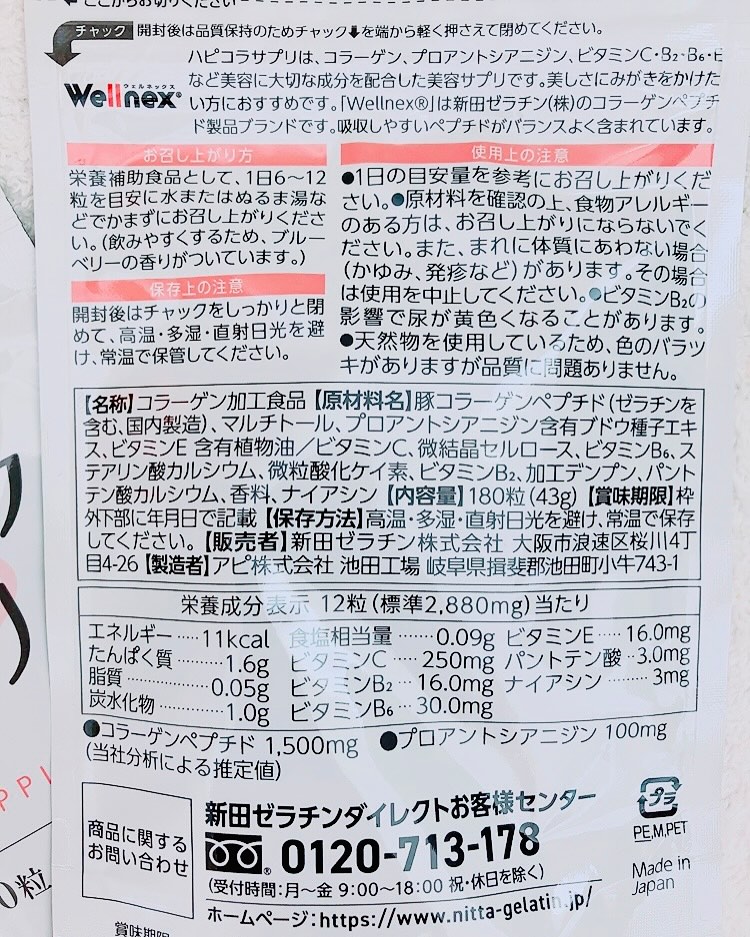 ここからお切りください
チャック 開封後は品質保持のためチャック⬇を端から軽く押さえて閉めてください。
ハピコラサプリは、コラーゲン、プロアントシアニジン、ビタミンC・B₂・B₆・E
など美容に大切な成分を配合した美容サプリです。美しさにみがきをかけた
い方におすすめです。「Wellnex®」は新田ゼラチン(株)のコラーゲンペプチ
ド製品ブランドです。吸収しやすいペプチドがバランスよく含まれています。
ウェルネックス
Wellnex®
お召し上がり方
栄養補助食品として、1日6〜12
粒を目安に水またはぬるま湯な
どでかまずにお召し上がりくださ
い。(飲みやすくするため、ブルー
ベリーの香りがついています。)
保存上の注意
開封後はチャックをしっかりと閉
めて、高温・多湿・直射日光を避
け、常温で保管してください。
使用上の注意
●1日の目安量を参考にお召し上がりくだ
さい。●原材料を確認の上、食物アレルギー
のある方は、お召し上がりにならないでく
ださい。また、まれに体質にあわない場合
(かゆみ、発疹など)があります。その場合
は使用を中止してください。●ビタミンB₂の
影響で尿が黄色くなることがあります。
●天然物を使用しているため、色のバラツ
キがありますが品質に問題ありません。
【名称】コラーゲン加工食品【原材料名】豚コラーゲンペプチド(ゼラチンを
含む、国内製造)、マルチトール、プロアントシアニジン含有ブドウ種子エキ
ス、ビタミンE 含有植物油/ビタミンC、微結晶セルロース、ビタミンB₆、ス
テアリン酸カルシウム、微粒酸化ケイ素、ビタミンB₂、加工デンプン、パント
テン酸カルシウム、香料、ナイアシン【内容量】180粒(43g)【賞味期限】枠
外下部に年月日で記載【保存方法】高温・多湿・直射日光を避け、常温で保存
してください。【販売者】新田ゼラチン株式会社 大阪市浪速区桜川4丁
目4-26【製造者】アピ株式会社 池田工場 岐阜県揖斐郡池田町小牛743-1
栄養成分表示 12粒(標準2,880mg)当たり
エネルギー……11kcal 食塩相当量……0.09g ビタミンE……16.0mg
たんぱく質……1.6g ビタミンC……250mg パントテン酸…3.0mg
脂質……0.05g ビタミンB₂…16.0mg ナイアシン……3mg
炭水化物……1.0g ビタミンB₆…30.0mg
●コラーゲンペプチド 1,500mg ●プロアントシアニジン 100mg
(当社分析による推定値)
商品に関する
お問い合わせ
新田ゼラチンダイレクトお客様センター
0120-713-178
(受付時間:月〜金 9:00〜18:00 祝・休日を除く)
ホームページ:https://www.nitta-gelatin.jp/
プラ
PE,M,PET
Made in
Japan
賞味期限
PPI
0粒